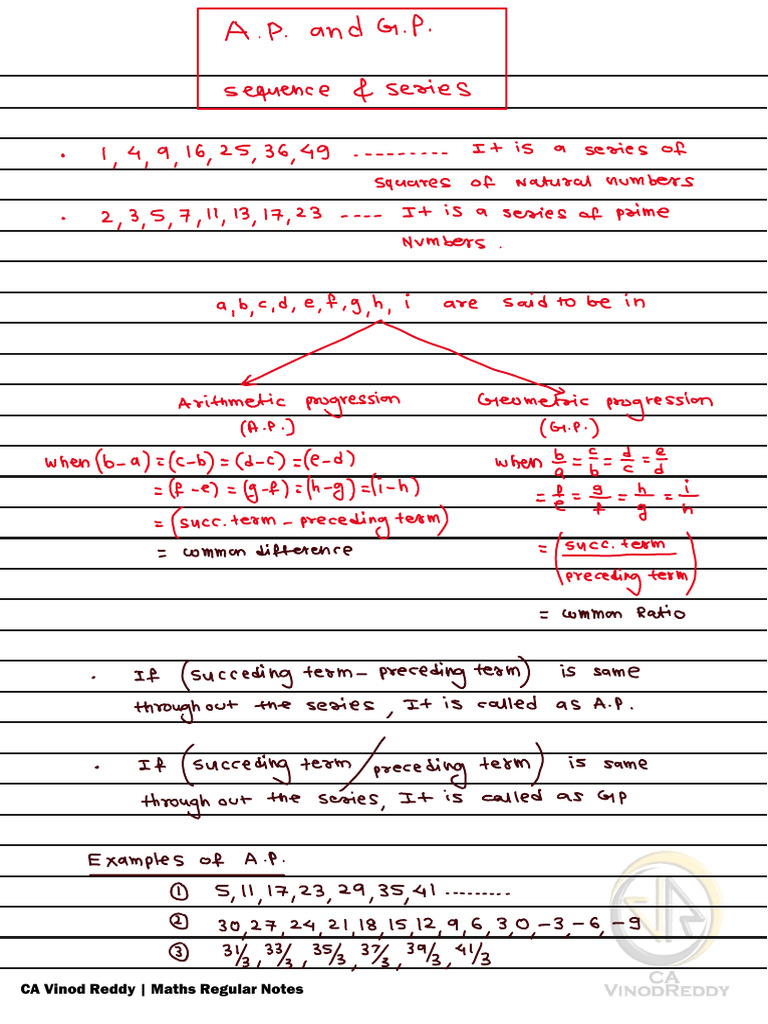 A.P. and G.P.
sequence & series
. 1, 4, 9, 16, 25, 36, 49 ......... It is a series of
squares of Natural numbers
. 2, 3, 5, 7, 11, 13, 17, 23 ---- It is a series of prime
Numbers.
a, b, c, d, e, f, g, h, i are said to be in
Arithmetic progression
(A.P.)
when (b-a) = (c-b) = (d-c) = (e-d)
= (f-e) = (g-f) = (h-g) = (i-h)
= (succ. term - preceding term)
= common difference
Geometric progression
(G.P.)
when b/a = c/b = d/c = e/d
= f/e = g/f = h/g = i/h
= (succ. term / preceding term)
= common Ratio
. If (succeding term - preceding term) is same
throughout the series, It is called as A.P.
. If (succeding term / preceding term) is same
through out the series, It is called as GP
Examples of A.P.
① 5, 11, 17, 23, 29, 35, 41 .........
② 30, 27, 24, 21, 18, 15, 12, 9, 6, 3, 0, -3, -6, -9
③ 31/3, 33/3, 35/3, 37/3, 39/3, 41/3
CA
VINODREDDY
CA Vinod Reddy | Maths Regular Notes